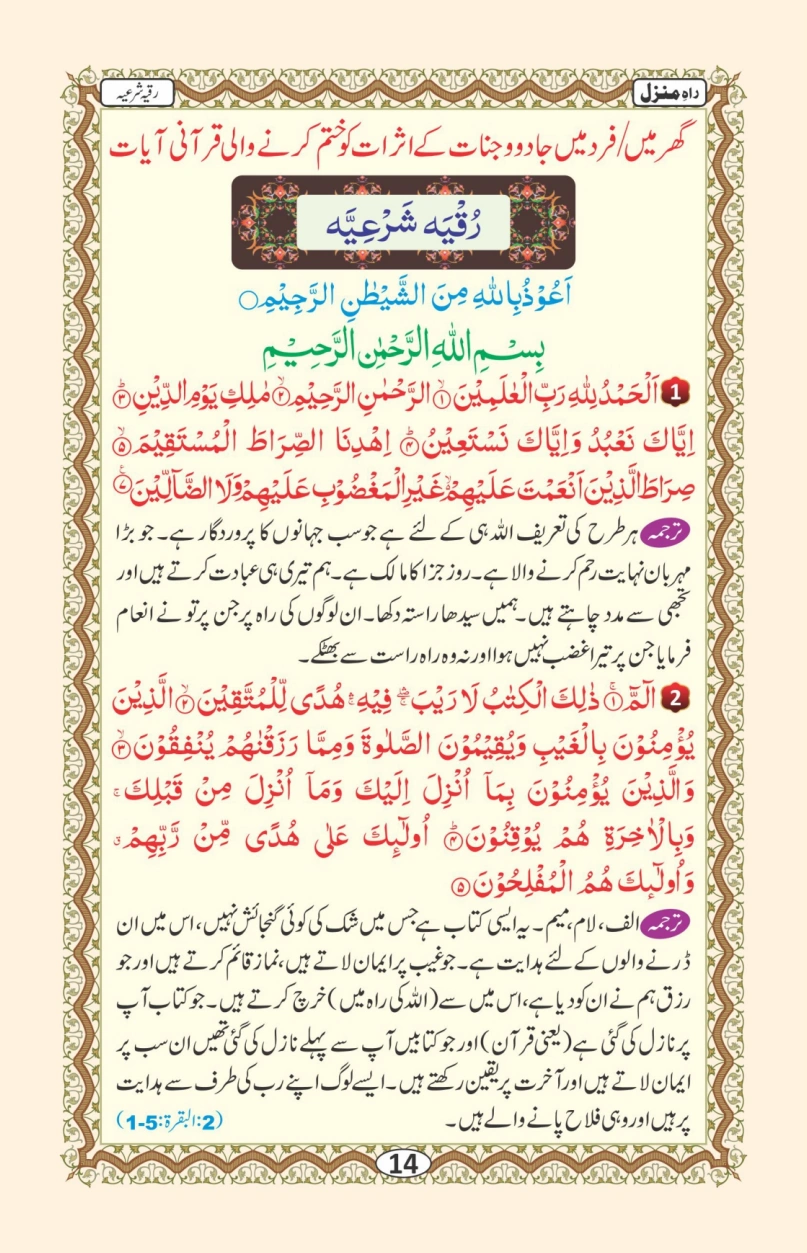 راہِ منزل
رقیہ شرعیہ
گھر میں/فرد میں جادو و جنات کے اثرات کو ختم کرنے والی قرآنی آیات
رُقْیَہ شَرْعِیَّہ
اَعُوْذُ بِاللهِ مِنَ الشَّیْطٰنِ الرَّجِیْمِ○
بِسْمِ اللهِ الرَّحْمٰنِ الرَّحِیْمِ
1 اَلْحَمْدُ لِلّٰهِ رَبِّ الْعٰلَمِیْنَۙ۝۱ الرَّحْمٰنِ الرَّحِیْمِۙ۝۲ مٰلِكِ یَوْمِ الدِّیْنِؕ۝۳
اِیَّاكَ نَعْبُدُ وَاِیَّاكَ نَسْتَعِیْنُؕ۝۴ اِهْدِنَا الصِّرَاطَ الْمُسْتَقِیْمَۙ۝۵
صِرَاطَ الَّذِیْنَ اَنْعَمْتَ عَلَیْهِمْ۬ۙ غَیْرِ الْمَغْضُوْبِ عَلَیْهِمْ وَلَا الضَّآلِّیْنَ۠۝۷
ترجمہ ہر طرح کی تعریف اللہ ہی کے لئے ہے جو سب جہانوں کا پروردگار ہے۔ جو بڑا
مہربان نہایت رحم کرنے والا ہے۔ روز جزا کا مالک ہے۔ ہم تیری ہی عبادت کرتے ہیں اور
تجھی سے مدد چاہتے ہیں۔ ہمیں سیدھا راستہ دکھا۔ ان لوگوں کی راہ پر جن پر تو نے انعام
فرمایا جن پر تیرا غضب نہیں ہوا اور نہ وہ راہ راست سے بھٹکے۔
2 الٓمّٓۚ۝۱ ذٰلِكَ الْكِتٰبُ لَا رَیْبَ ۛۖ فِیْهِ ۛۚ هُدًی لِّلْمُتَّقِیْنَۙ۝۲ الَّذِیْنَ
یُؤْمِنُوْنَ بِالْغَیْبِ وَیُقِیْمُوْنَ الصَّلٰوةَ وَمِمَّا رَزَقْنٰهُمْ یُنْفِقُوْنَۙ۝۳
وَالَّذِیْنَ یُؤْمِنُوْنَ بِمَاۤ اُنْزِلَ اِلَیْكَ وَمَاۤ اُنْزِلَ مِنْ قَبْلِكَۚ
وَبِالْاٰخِرَةِ هُمْ یُوْقِنُوْنَؕ۝۴ اُولٰٓىِٕكَ عَلٰی هُدًی مِّنْ رَّبِّهِمْۗ
وَاُولٰٓىِٕكَ هُمُ الْمُفْلِحُوْنَ۝۵
ترجمہ الف، لام، میم۔ یہ ایسی کتاب ہے جس میں شک کی کوئی گنجائش نہیں، اس میں ان
ڈرنے والوں کے لئے ہدایت ہے۔ جو غیب پر ایمان لاتے ہیں، نماز قائم کرتے ہیں اور جو
رزق ہم نے ان کو دیا ہے، اس میں سے (اللہ کی راہ میں) خرچ کرتے ہیں۔ جو کتاب آپ
پر نازل کی گئی ہے (یعنی قرآن) اور جو کتابیں آپ سے پہلے نازل کی گئی تھیں ان سب پر
ایمان لاتے ہیں اور آخرت پر یقین رکھتے ہیں۔ ایسے لوگ اپنے رب کی طرف سے ہدایت
پر ہیں اور وہی فلاح پانے والے ہیں۔ (2:البقرۃ:5-1)
14